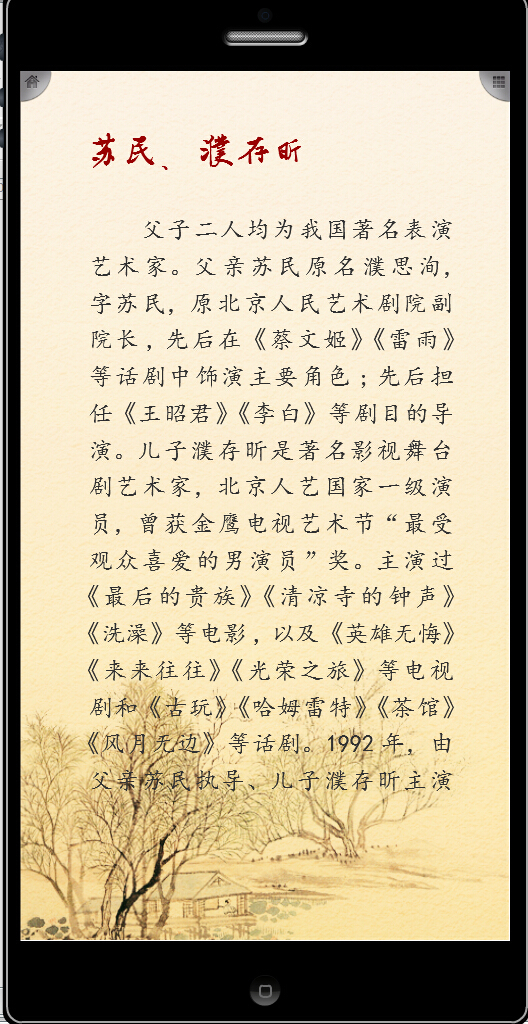 苏民、濮存昕
父子二人均为我国著名表演
艺术家。父亲苏民原名濮思洵，
字苏民，原北京人民艺术剧院副
院长，先后在《蔡文姬》《雷雨》
等话剧中饰演主要角色；先后担
任《王昭君》《李白》等剧目的导
演。儿子濮存昕是著名影视舞台
剧艺术家，北京人艺国家一级演
员，曾获金鹰电视艺术节“最受
观众喜爱的男演员”奖。主演过
《最后的贵族》《清凉寺的钟声》
《洗澡》等电影，以及《英雄无悔》
《来来往往》《光荣之旅》等电视
剧和《古玩》《哈姆雷特》《茶馆》
《风月无边》等话剧。1992年，由
父亲苏民执导、儿子濮存昕主演